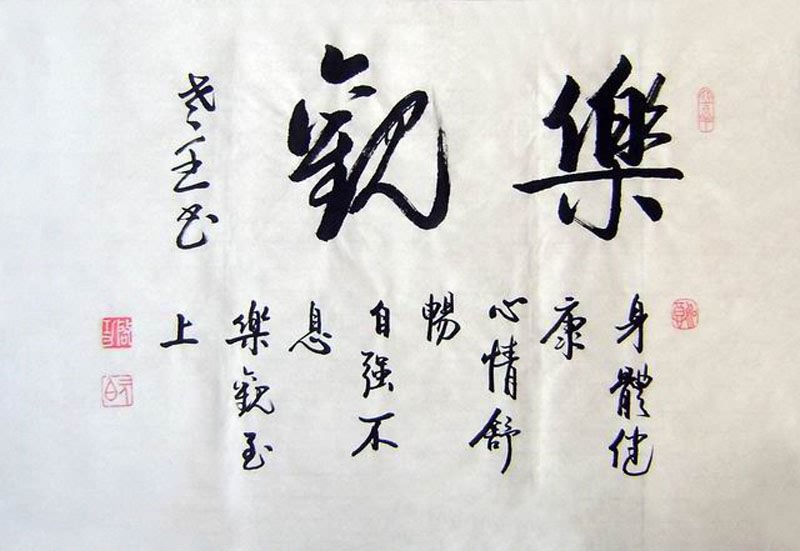 樂觀
身體健
康
心情舒
暢
自强不
息
樂觀至
上
书